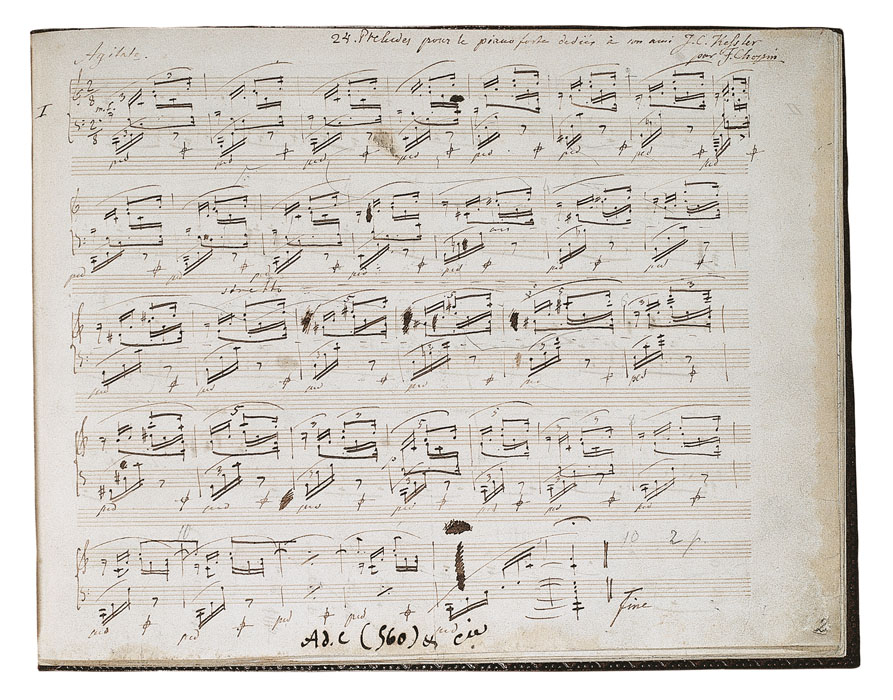 24. Preludes pour le pianoforte dediés à son ami J. C. Kessler
Agitato. par F. Chopin
I
2/8 3
m.f.
2/8
ped ped ped ped ped ped ped ped
ped ped ped ped ped ped ped
stretto
5 5 5 3
ped ped ped ped ped ped
5 3 5 3
ped ped ped ped ped ped
10 2 p.
ped ped ped ped ped
Fine
Ad. C (560) & cie
2